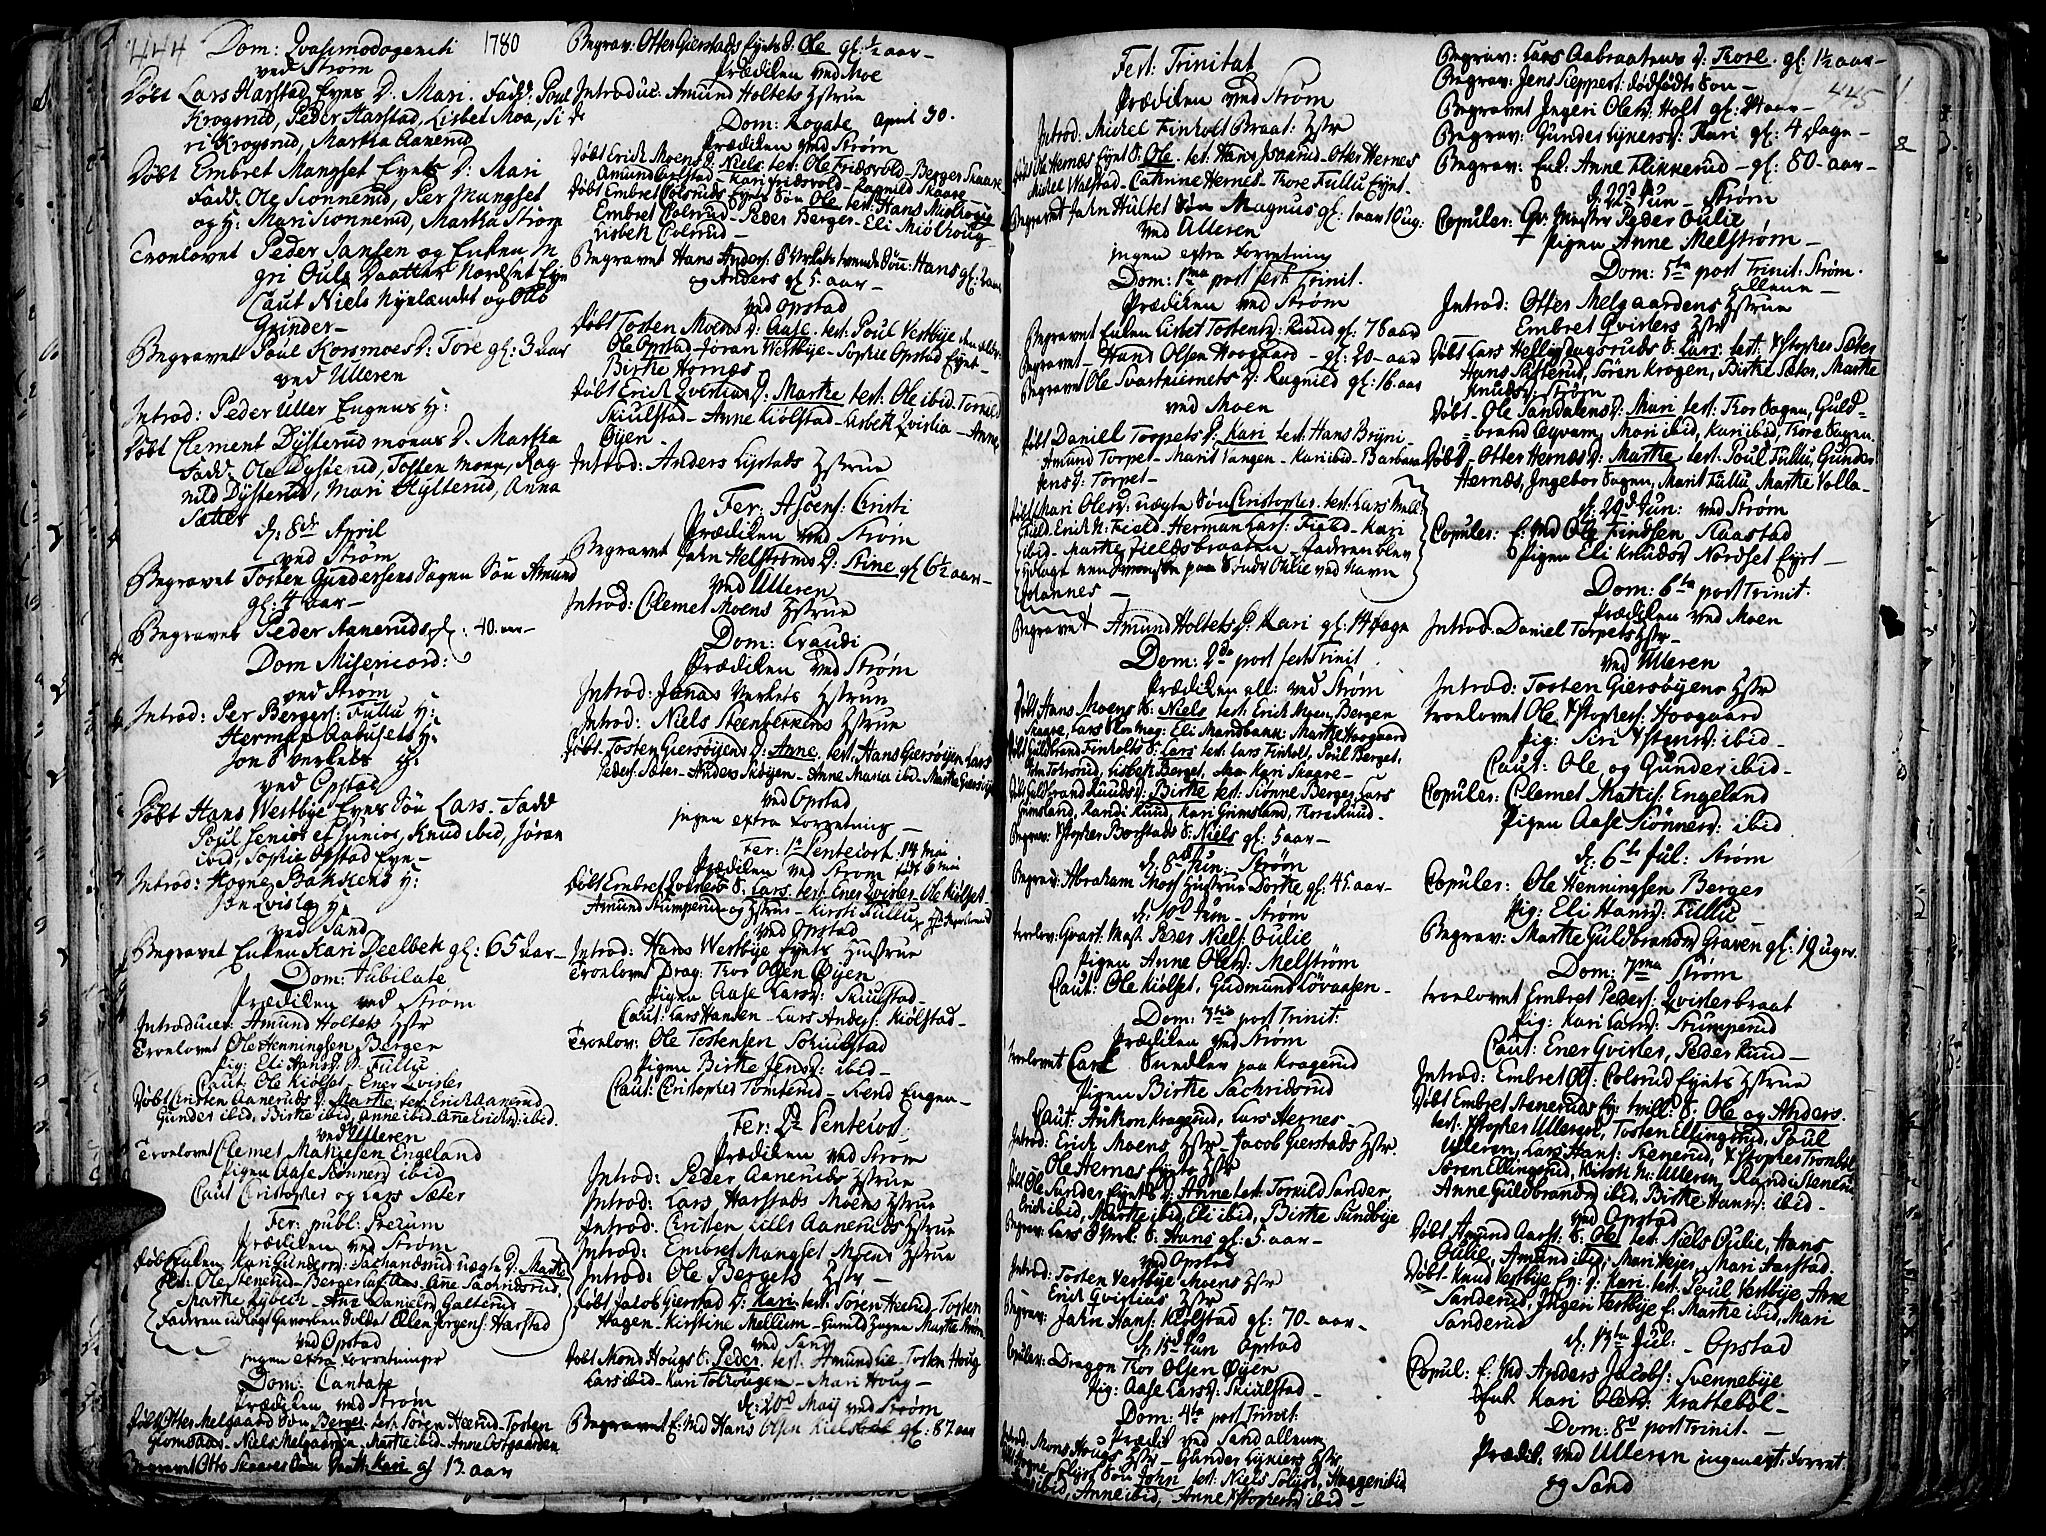 444 Dom: Qvasimodogeniti 1780
ved Strøm
Døbt Lars Harstad Eyes D. Mari. Fadd: Poul
Krogsrud, Peder Harstad, Lisbet Moa, Si
ri Krogsrud, Martha Aanerud
Døbt Embret Mangset Eyets D. Mari
Fadd: Ole Skonnerud, Per Mangset
og H: Mari Skonnerud, Martha Strøm
Tronlovet Peder Jansen og Enken
gri Ouls Daatter Nordset Eye
Caut Niels Nyelændet og Otto
Grinder
Begravet Poul Korsmoes D: Tore gl: 3 aar
ved Ulleren
Introd: Peder Uller Engens H:
Døbt Clement Dysterud moens D. Martha
Fadd: Ole Dysterud, Tosten Moen, Rag
nild Dysterud, Mari Hylterud, Anna
Sætter
d: 8de April
ved Strøm
Begravet Tosten Gundersens Sagen Søn Amund
gl: 4 aar
Begravet Peder Aanerud gl: 40. aar
Dom Misericord:
ved Strøm
Introd: Per Bergers: Fullu H:
Herman Aabuset H:
Jon Sverkels H:
ved Opstad
Døbt Hans Westbye Eyes Søn Lars. Fadd
Poul Senior et Junior, Knud ibid, Jøran
ibid, Sophie Opstad Eye
Introd: Hogne Bakkens H:
Jon Qvisla H:
ved Sand
Begravet Enken Kari Deelbek gl: 65 aar
Dom: Jubilate
Prædiken ved Strøm
Introducer: Amund Holtets Hstr
Tronlovet Ole Henningsen Berger
Pig: Eli Hansd. Fullu
Caut: Ole Kiølset Ener Qvisler
Døbt Christen Aaneruds D: Marthe test: Erich Aanerud,
Gunder ibid, Birthe ibid, Anne ibid, Ane Erichsd: ibid.
ved Ulleren
Tronlovet Clemet Mathiesen Engeland
Pigen Aase Skonnerd ibid
Caut Christopher og Lars Sæter
Fer: publ: Precum
Prædiken ved Strøm
Døbt Kari Gundersd: Sachariasrud uægte D: Marthe
test: Ole Stenerud Berger Ane Sachridsrud,
Marthe Nybech Ane Danielsd Gallerud
Faderen udlagt Gevorben Soldat Ellen Jørgens: Harstad
ved Opstad
ingen extra Forretninger
Dom: Cantate
Prædiken ved Strøm
Døbt Otter Melgaard Søn Berger test. Søren Heerud Tosten
Glomsaas Niels Melgaarden, Marthe ibid. Anne Ostgaarden
Begravet Otto Skaares Kari gl 13. aar
Begrav: Otter Gierstads Eyets S: Ole gl. ½ aar
Prædiken ved Moe
Introduc: Amund Holtets Hstrue
Dom: Rogate April 30.
Prædiken ved Strøm
Døbt Erich Moens S. Niels test: Ole Fridsvold Berger Skaare
Amund Fridsvold Ragnild Skaare
Døbt Embret Colsruds Eyets Søn Ole test: Hans Miolhoug
Embret Colsrud Peder Berger Eli Miolhoug
Lisbeth Colsrud
Begravet Hans Anders: tvende Søn: Hans gl: 2 aar
og Anders gl. 5 aar
ved Opstad
Døbt Tosten Moens D: Aase test: Poul Vestbye den
Ole Opstad Jøran Westbye Sophie Opstad Eyet
Birthe Hornæs
Døbt Erich Qvernas D: Marthe test: Ole ibid. Tornild
Skiulstad Anne Kiølstad Lisbeth Qvislia Anne
Øyen
Introd: Anders Lystads Hstrue
Fer: Ascens: Christi
Prædiken ved Strøm
Begravet Jahn Helstrøms D: Stine gl 6½ aar
ved Ulleren
Introd: Clemet Moens Hstrue
Dom: Exaudi
Prædiken ved Strøm
Introd: Jonas Verkets Hstrue
Introd: Niels Steenbekkens Hstrue
Døbt Tosten Giersøyens D: Anne test: Hans Giersøyen Lars
Peders: Sæter Anders Skøyen Anne Maria ibid. Marthe Giersøyen
ved Opstad
ingen extra forretning
Fer: 1ma Pentecost. 14 Mai
Prædiken ved Strøm
Døbt Embret Qvislers S. Lars test: Ener Qvisler Ole Kiølset
Amund Stumperud og Hstrue Kirsti Fullu
ved Opstad
Introd: Hans Westbye Eyets Hustrue
Tronlovet Drag: Tor Olsen Øyen
Pigen Aase Larsd: Skiulstad
Caut: Lars Hansen Lars Anders: Kiølstad
Tronlov: Ole Tostensen Schiulstad
Pigen Birthe Jensd: ibid
Caut: Christopher Tomterud Svend Engen
Fer: 2da Pentecost
Prædiken ved Strøm
Introd: Peder Aaneruds Hstrue
Introd: Lars Harstads Moens Hstrue
Introd: Christen Lille Aaneruds Hstrue
Introd: Embret Mangset Moens Hstrue
Introd: Ole Bergets Hstr
Døbt Jacob Gierstad D: Kari test: Søren Heerud Tosten
Hagen Kirstine Mellum Gunild Hagen Marthe Strøm
ved Sand
Døbt Mons Hougs S: Peder test: Amund Lie Tosten Houg
Lars ibid Kari Tolvougen Mari Houg
d: 20d Maij ved Strøm
Begravet E: Md Hans Olsen Kielset gl: 87 aar
Fest: Trinitat
Prædiken ved Strøm
Introd: Michel Finholt Braat: Hstr
Døbt Ole Hernæs Eyet S: Ole test: Hans Isaarud Otter Hernes
Michel Walstad Cathrine Hernes Thore Fullu Eyet
Begravet Jahn Hultet Søn Magnus gl: 1 aar 10 ug:
ved Ulleren
ingen extra Forretning
Dom: 1ma post fest Trinit.
Prædiken ved Strøm
Begravet Enken Lisbet Tostensd: Ruud gl: 76 aar
Begravet Hans Olsen Hoogaard gl: 20 aar
Begravet Ole Svartkiernets D: Ragnild gl: 16 aar
ved Moen
Døbt Daniel Torpets D: Kari test: Hans Bryni
Amund Torpet Marit Vangen Kari ibid Barbara
Jensd: Torpet
Døbt Mari Olesd: uægte Søn Christopher test: Lars
Erich N: Field Herman Lars: Field Kari
ibid Marthe Fieldsbraaten Faderen blev
udlagt een Svenske paa Søndr Oulie ved Navn
Johannes
Begravet Amund Holtets D. Kari gl: 14 dage
Dom: 2da post fest Trinit
Prædiken all: ved Strøm
Døbt Hans Moens S: Niels test: Erich Moen, Berger
Skaare, Lars Eli Mandbank: Marthe Hoogaard
Døbt Guldbrand Finholts S: Lars test: Lars Finholt, Poul Berget,
Tolvsrud, Lisbeth Berget, Kari Skaare
Døbt Guldbrand Ruuds D: Birthe test: Sionne Berger, Lars
Grimsland, Randi Ruud, Kari Grimsland, Thore Ruud
Begrav: Xstopher Borstads S: Niels gl. 5 aar
d: 8d Jun: Strøm
Begrav: Abraham Moss Hustrue Dorthe gl: 45. aar
d: 10d Jun Strøm
tronlov: Gvart: Mast: Peder Niels: Oulie
Pigen Anne Olesd: Melstrøm
Caut: Ole Kiølset, Gudmund Lövaasen
Dom: 3tia post Trinit:
Prædiken ved Strøm
tronlovet Carl Sundler paa Kragerud
Pigen Birthe Sachridsrud
Caut: Anthon Kragerud, Lars Hernes
Introd: Erich Moens Hstr Jacob Gierstads Hstr.
Ole Hernæs Eyets Hstr
Døbt Ole Sander Eyets D: Anne test: Tornild Sander,
Erich ibid, Marthe ibid, Eli ibid, Birthe Sundbye
Begrav: Lars S: Hans gl: 5. aar
ved Opstad
Introd: Tosten Vestbye Moens Hstr
Erich Qvislias Hstr
Begrav: Jahn Hans: Kiølstad gl: 70 aar
d: 15d Jun Opstad
Copuler: Dragon Tor Olsen Øyen
Pig: Aase Larsd: Skiulstad
Dom: 4ta post Trinit:
Prædik ved Sand allene
Introd: Mons Hougs Hstr Gunder Lykiers Hstr
Solijst Søn John test: Niels Solijst, Haagen ibid
ibid, Anne ibid, Anne Xstophersd ibid
Begrav: Lars Aabraatens D: Tore gl: 1½ aar
Begrav: Jens Sieppers: dødfødte Søn
445
Begravet Ingeri Olesd: Holt gl: 24 aar
Begrav: Gunder Lykiers D: Kari gl: 4 dage
Begrav: Enk: Anne Flikkerud gl: 80 aar
d: 22d Jun Strøm
Copuler: Qv: Mester Peder Oulie
Pigen Anne Melstrøm
Dom: 5ta post Trinit: Strøm.
allene
Introd: Otter Melgaardens Hstrue
Embret Qvislers Hstr
Døbt Lars Helliesdagsruds S: Lars. test: Xstopher Sæter
Hans Søren Krogen, Birthe Sæter, Marthe
Knudsd: Strøm
Døbt Ole Sandalens D: Mari test: Tor Sagen, Guld=
=brand Egvam, Mari ibid, Kari ibid, Thore Sagen.
Døbt Otter Hernæs D: Marthe test: Poul Fullu, Gunder
Hernæs, Ingebor Sagen, Marit Fullu, Marthe Volla
d: 29d Jun: ved Strøm
Copuler: E: Md Ole Findsen Slaastad
Pigen Eli Knudsd: Nordset Eyet
Dom: 6ta post Trinit:
Prædiken ved Moen
Introd. Daniel Torpets Hstr
ved Ulleren
Introd: Tosten Giersøyens Hstr
tronlovet Ole Xstophers: Hoogaard
Pig: Siri Xstensd: ibid
Caut: Ole og Gunder ibid
Copuler: Clemet Mathis: Engeland
Pigen Aase Sionnersd: ibid
d: 6te Jul: Strøm
Copuler: Ole Henningsen Berger
Pig: Eli Hansd: Fullu
Begrav: Marthe Guldbrandsd Graven gl: 19 uger.
Dom: 7ma Strøm
tronlovet Embret Peders: Qvislerbraat
Pig: Kari Larsd: Stumperud
Caut: Ener Qvisler, Peder Ruud
Introd: Embret Ols: Colsrud Eyets Hstrue
Døbt Embret Steneruds Ey: tvill: S: Ole og Anders.
test: Xstopher Ulleren, Tosten Ellingsrud, Poul
Ulleren, Lars Hans: Stenerud, Xstopher Trombøl,
Søren Ellingsrud, Kirsti N: Ulleren, Randi Stenerud
Anne Guldbrandsd ibid, Birthe Hansd: ibid
ved Opstad
Døbt Amund Aarst S: Ole test: Niels Oulie, Hans
Oulie, Amund ibid, Mari Heyer, Mari Aarstad.
Døbt Knud Vestbye Ey: D: Kari test: Poul Vestbye, Arne
Sanderud, Ingeri Vestbye E: Marthe ibid, Mari
Sanderud
d: 13de Jul: Opstad
Copul: E: Md Anders Jacobs: Svennebye
Enk Kari Olesd: Krattebøl
Dom: 8d post Trinit.
Prædik. ved Ulleren ingen ext: Forret:
og Sand